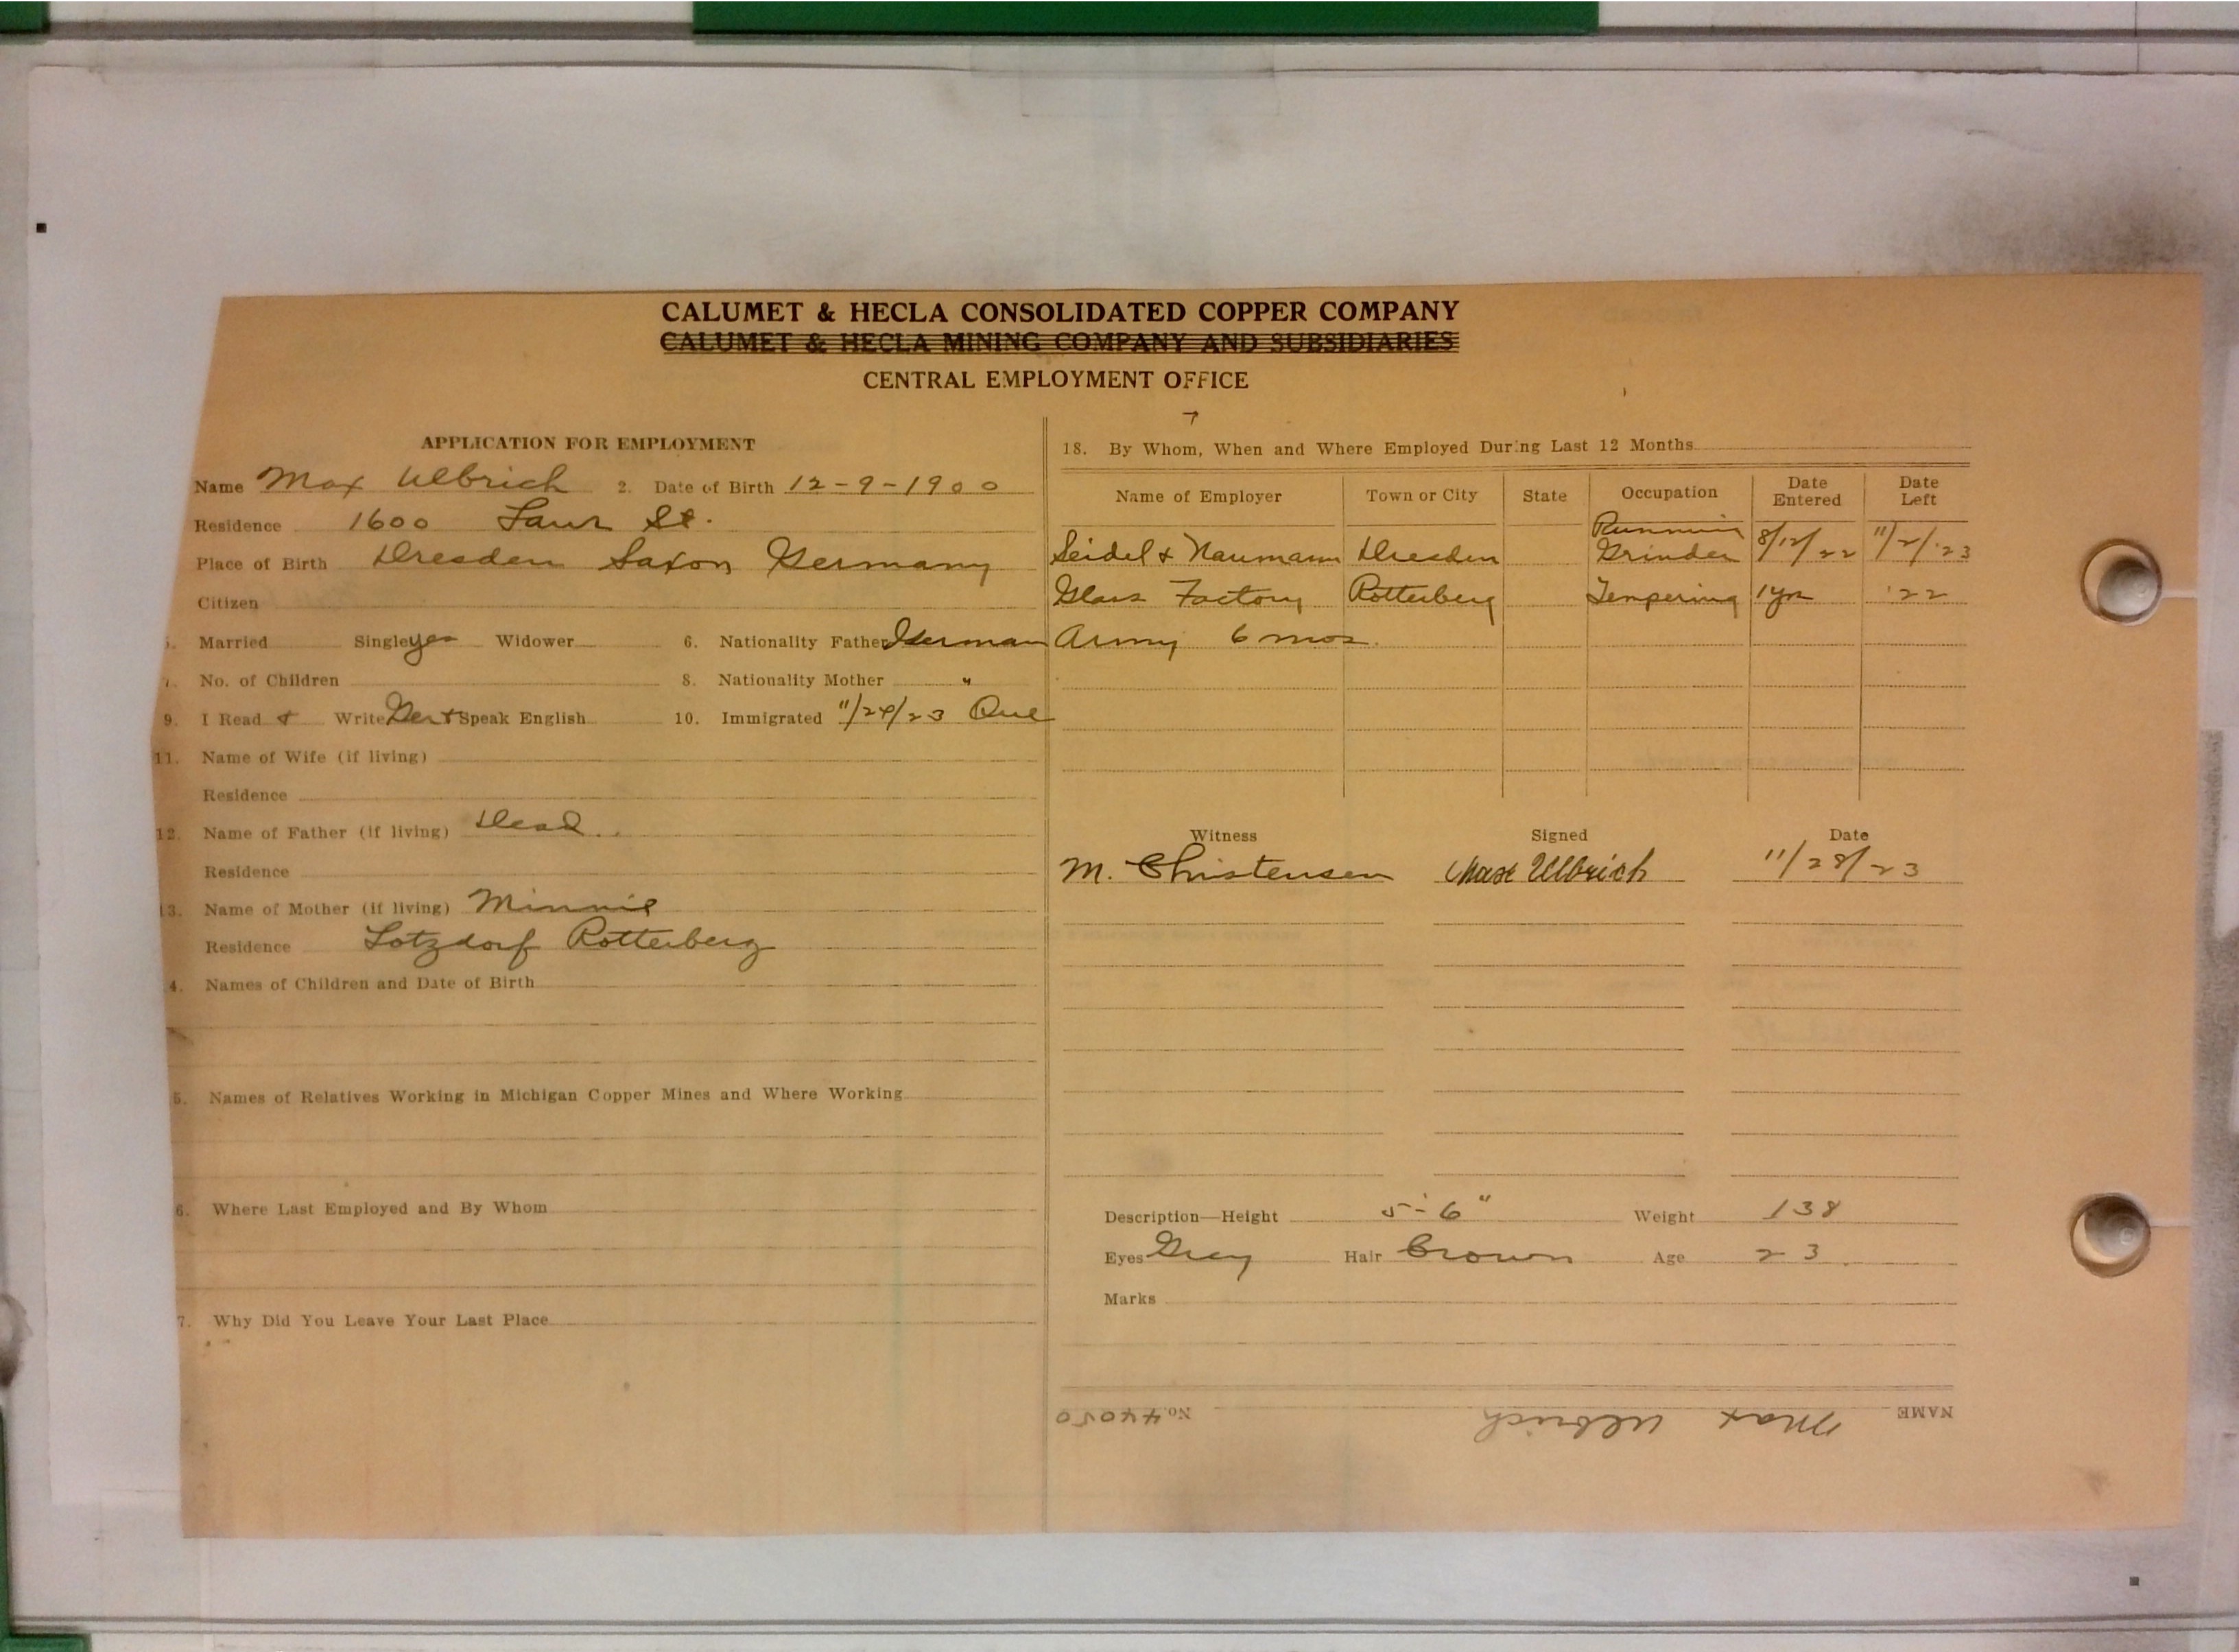 CALUMET & HECLA CONSOLIDATED COPPER COMPANY
CALUMET & HECLA MINING COMPANY AND SUBSIDIARIES
CENTRAL EMPLOYMENT OFFICE
APPLICATION FOR EMPLOYMENT
Name Max Ulbrich 2. Date of Birth 12-9-1900
Residence 1600 St.
Place of Birth Dresden Saxon Germany
Citizen
5. Married Single yes Widower 6. Nationality Father German
7. No. of Children 8. Nationality Mother "
9. I Read + Write Ger + Speak English 10. Immigrated 11/24/23 Que
11. Name of Wife (if living)
Residence
12. Name of Father (if living) Dead
Residence
13. Name of Mother (if living) Minnie
Residence Lotzdorf Rotterberg
4. Names of Children and Date of Birth
5. Names of Relatives Working in Michigan Copper Mines and Where Working
6. Where Last Employed and By Whom
7. Why Did You Leave Your Last Place
18. By Whom, When and Where Employed During Last 12 Months
Name of Employer Town or City State Occupation Date Entered Date Left
Seidel & Naumann Dresden Running Grinder 8/12/22 11/2/23
Glass Factory Rotterberg Tempering 1 yr '22
Army 6 mos.
Witness Signed Date
M. Christensen Max Ulbrich 11/28/23
Description—Height 5'-6" Weight 138
Eyes Grey Hair Brown Age 23
Marks
NAME Max Ulbrich No. 44050